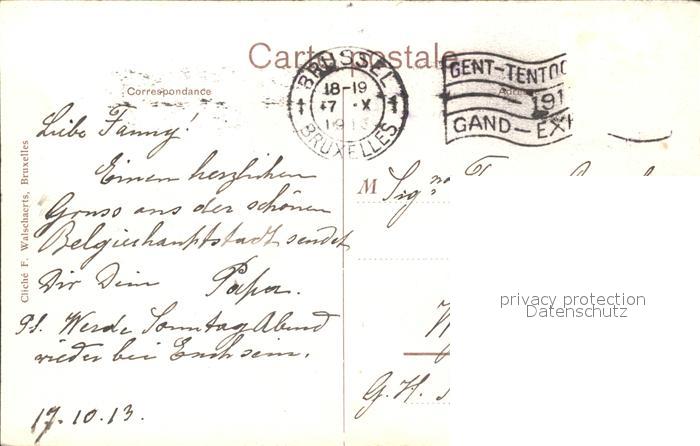 Carte postale
BRUSSEL
18-19
17 X
1913
BRUXELLES
GENT-TENTOO
191
GAND-EXP
Correspondance
Cliché F. Walschaerts, Bruxelles
Liebe Fanny!
Einen herzlichen
Gruss aus der schönen
Belgierhauptstadt sendet
Dir Dein Papa.
PS. Werde Sonntag Abend
wieder bei Euch sein.
17.10.13.
M Sig.na
G.H.
privacy protection
Datenschutz